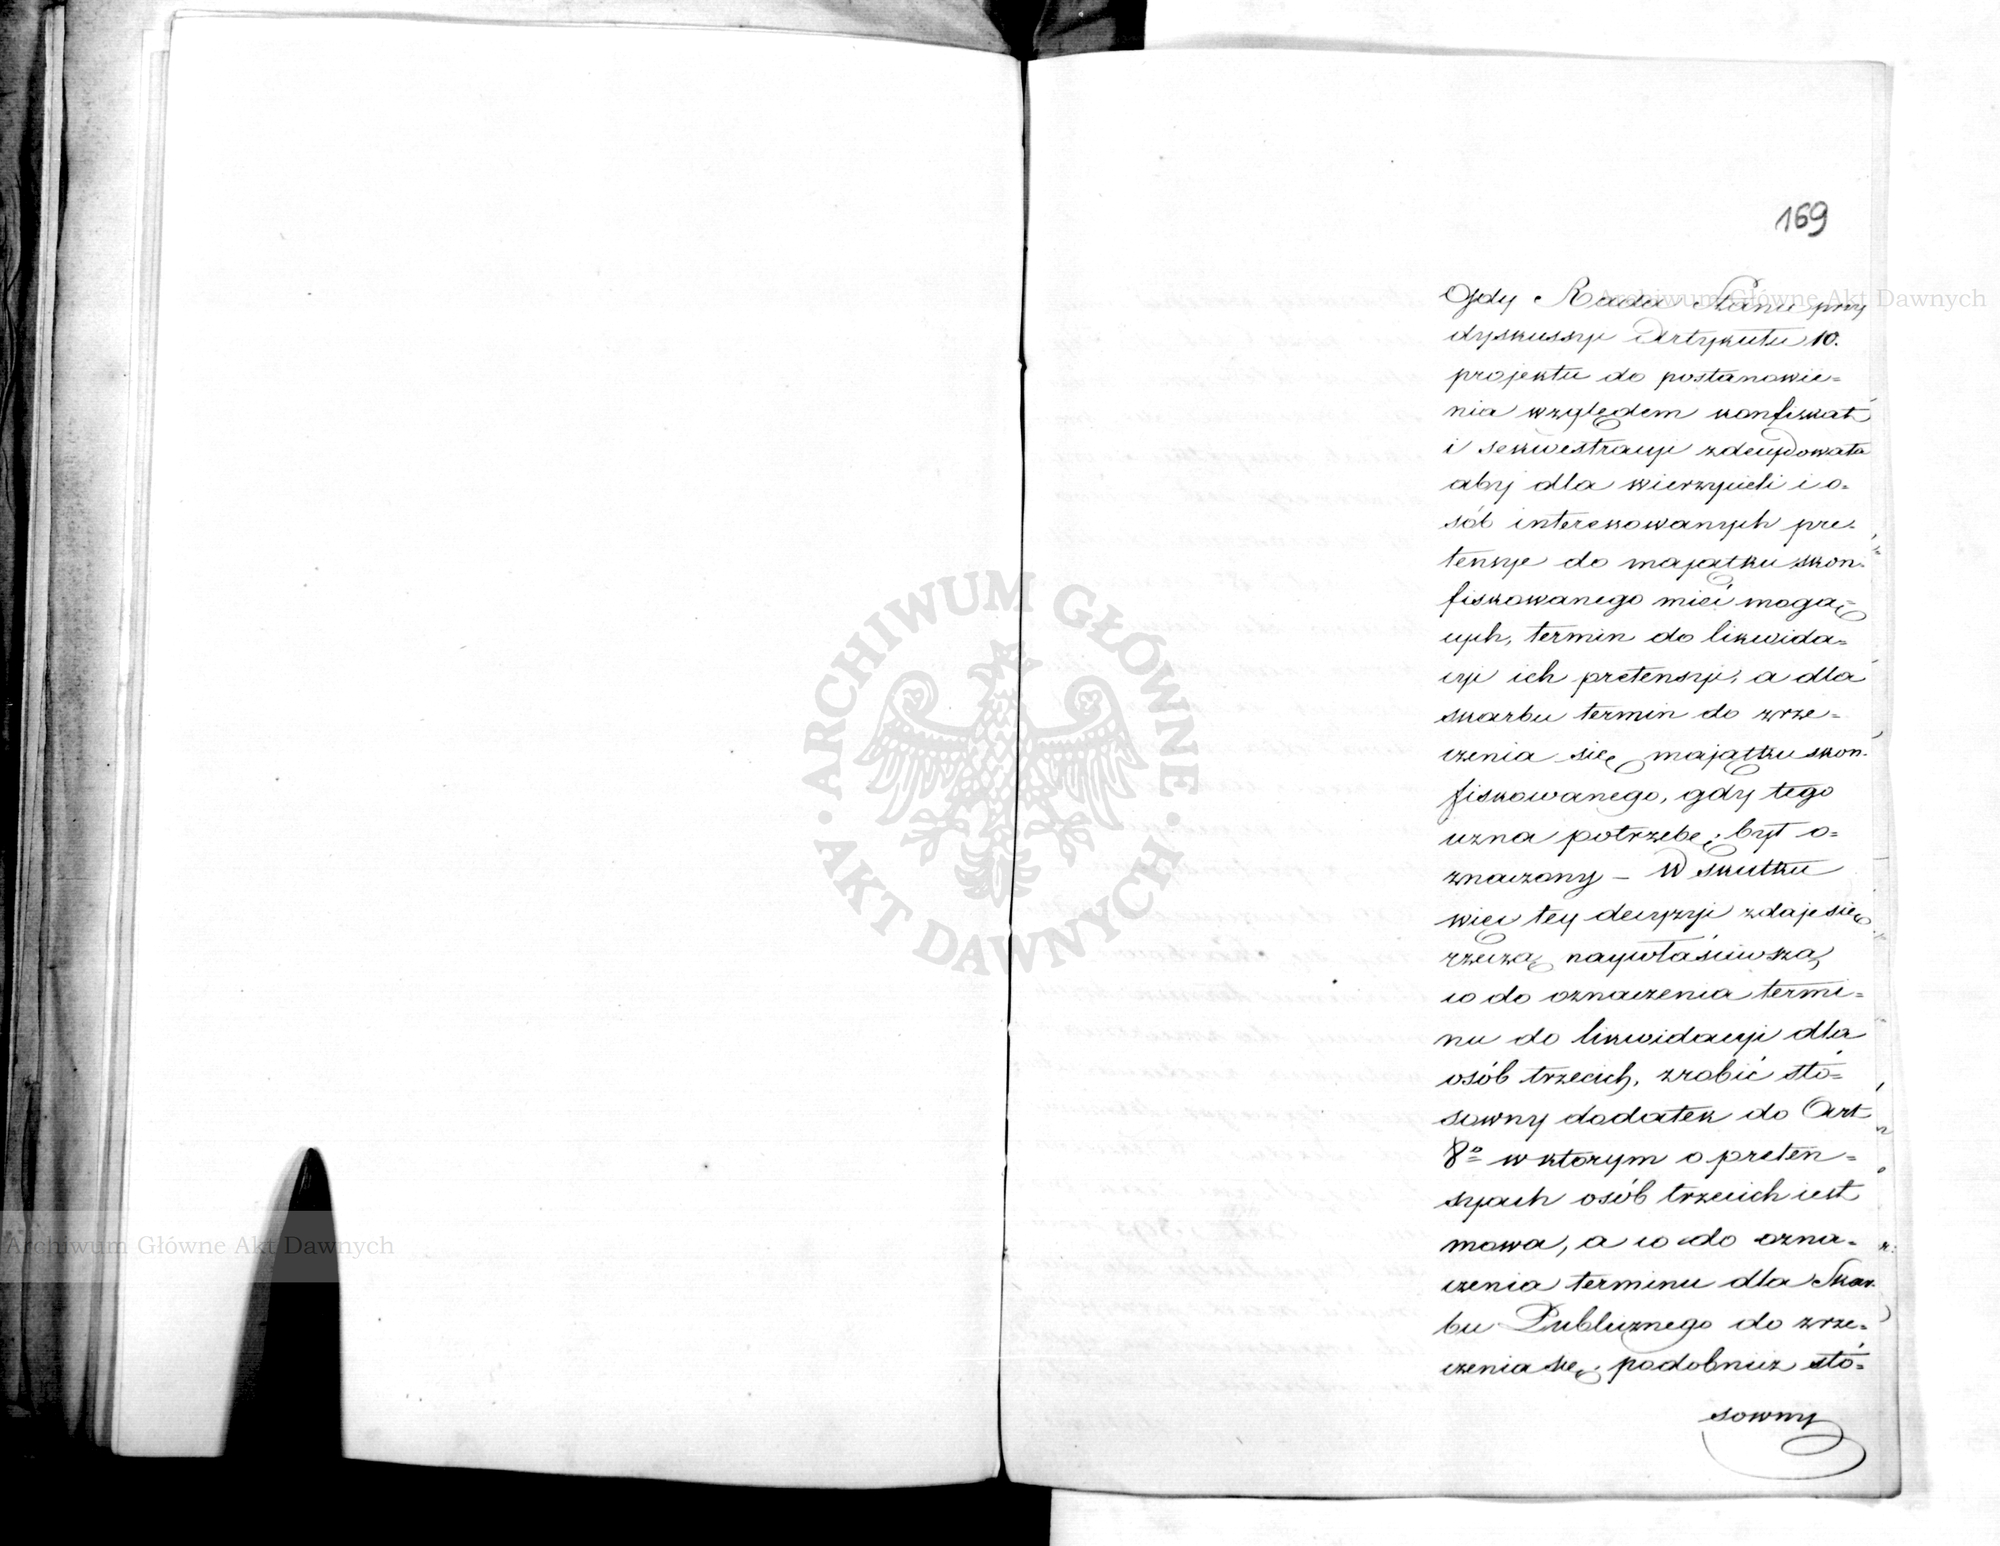 169
Gdy Rada Stanu przy
dyskussyi Artykułu 10.
projektu do postanowie=
nia względem konfiskat
i sekwestracyi zdecydowała
aby dla wierzycieli i o=
sób interesowanych pre=
tensye do majątku skon=
fiskowanego mieć mogą=
cych, termin do likwida=
cyi ich pretensyi, a dla
skarbu termin do zrze=
czenia się majątku skon=
fiskowanego, gdy tego
uzna potrzebę, był o=
znaczony — W skutku
więc tey decyzyi zdaje się
rzeczą naywłaściwszą,
co do oznaczenia termi=
nu do likwidacyi dla
osób trzecich, zrobić stó=
sowny dodatek do Art
8º w którym o preten=
syach osób trzecich iest
mowa, a co do ozna=
czenia terminu dla Skar=
bu Publicznego do zrze=
czenia się, podobnież stó=
sowny
ARCHIWUM GŁÓWNE · AKT DAWNYCH ·
Archiwum Główne Akt Dawnych
Archiwum Główne Akt Dawnych